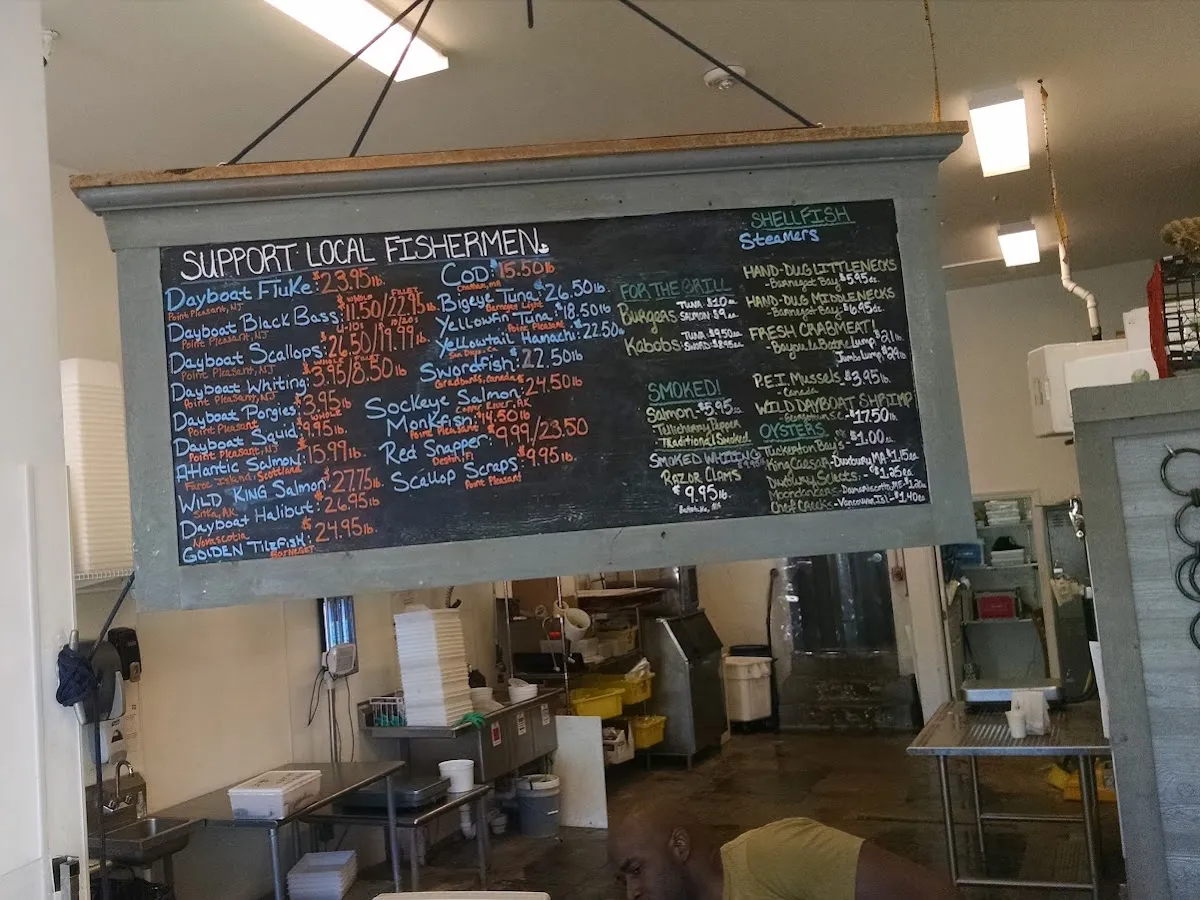 SUPPORT LOCAL FISHERMEN
Dayboat Fluke: $23.95lb
Point Pleasant, NJ
WHOLE FILLET
Dayboat Black Bass: 11.50/22.95lb.
Point Pleasant, NJ
Dayboat Scallops: 26.50/19.99lb.
Point Pleasant, NJ
WHOLE FILLET
Dayboat Whiting: $3.95/8.50lb
Point Pleasant, NJ
Dayboat Porgies: $3.95lb
Point Pleasant, NJ
WHOLE
Dayboat Squid: 9.95lb.
Point Pleasant, NJ
Atlantic Salmon: 15.99lb.
Faroe Island, Scotland
WILD KING Salmon $27.75lb.
Sitka, AK
Dayboat Halibut: $26.95lb
Novascotia
GOLDEN Tilefish: $24.95lb.
BARNEGET
COD: $15.50lb
Chatham, MA
Bigeye Tuna: $26.50lb
Barnegat Light
Yellowfin Tuna: $18.50lb
Point Pleasant
Yellowtail Hamachi: $22.50lb
San Diego, CA
Swordfish: $22.50lb
Gradbanks, Canada
Sockeye Salmon: $24.50lb
Copper River, AK
Monkfish: 14.50lb
Point Pleasant
Red Snapper: $9.99/23.50
Destin, Fl
Scallop Scraps: $9.95lb.
Point Pleasant
FOR THE GRILL
Burgers TUNA $10ea
SALMON $9ea
Kabobs: TUNA $9.50ea
SWORD $8.95ea
SMOKED!
Salmon - $5.95ea
Tellicherry Pepper
Traditional Smoked
SMOKED WHITING
RAZOR CLAMS
$9.95lb.
SHELLFISH
Steamers
HAND-DUG LITTLENECKS
- Barnegat Bay $5.95dz.
HAND-DUG MIDDLENECKS
- Barnegat Bay $6.95dz.
FRESH CRABMEAT!
- Bayou la Batre Lump $21lb.
Jumbo Lump $29lb
P.E.I. Mussels $3.95lb.
- Canada
WILD DAYBOAT SHRIMP
- Georgetown S.C. - $17.50lb.
OYSTERS
Tuckerton Bay $1.00ea.
King Caesar - Duxbury, MA $1.15ea
Duxbury Selects - $1.25ea
Moondancers - Damariscotta, ME $1.20ea
Chef Creek - Vancouver Isl - $1.40ea